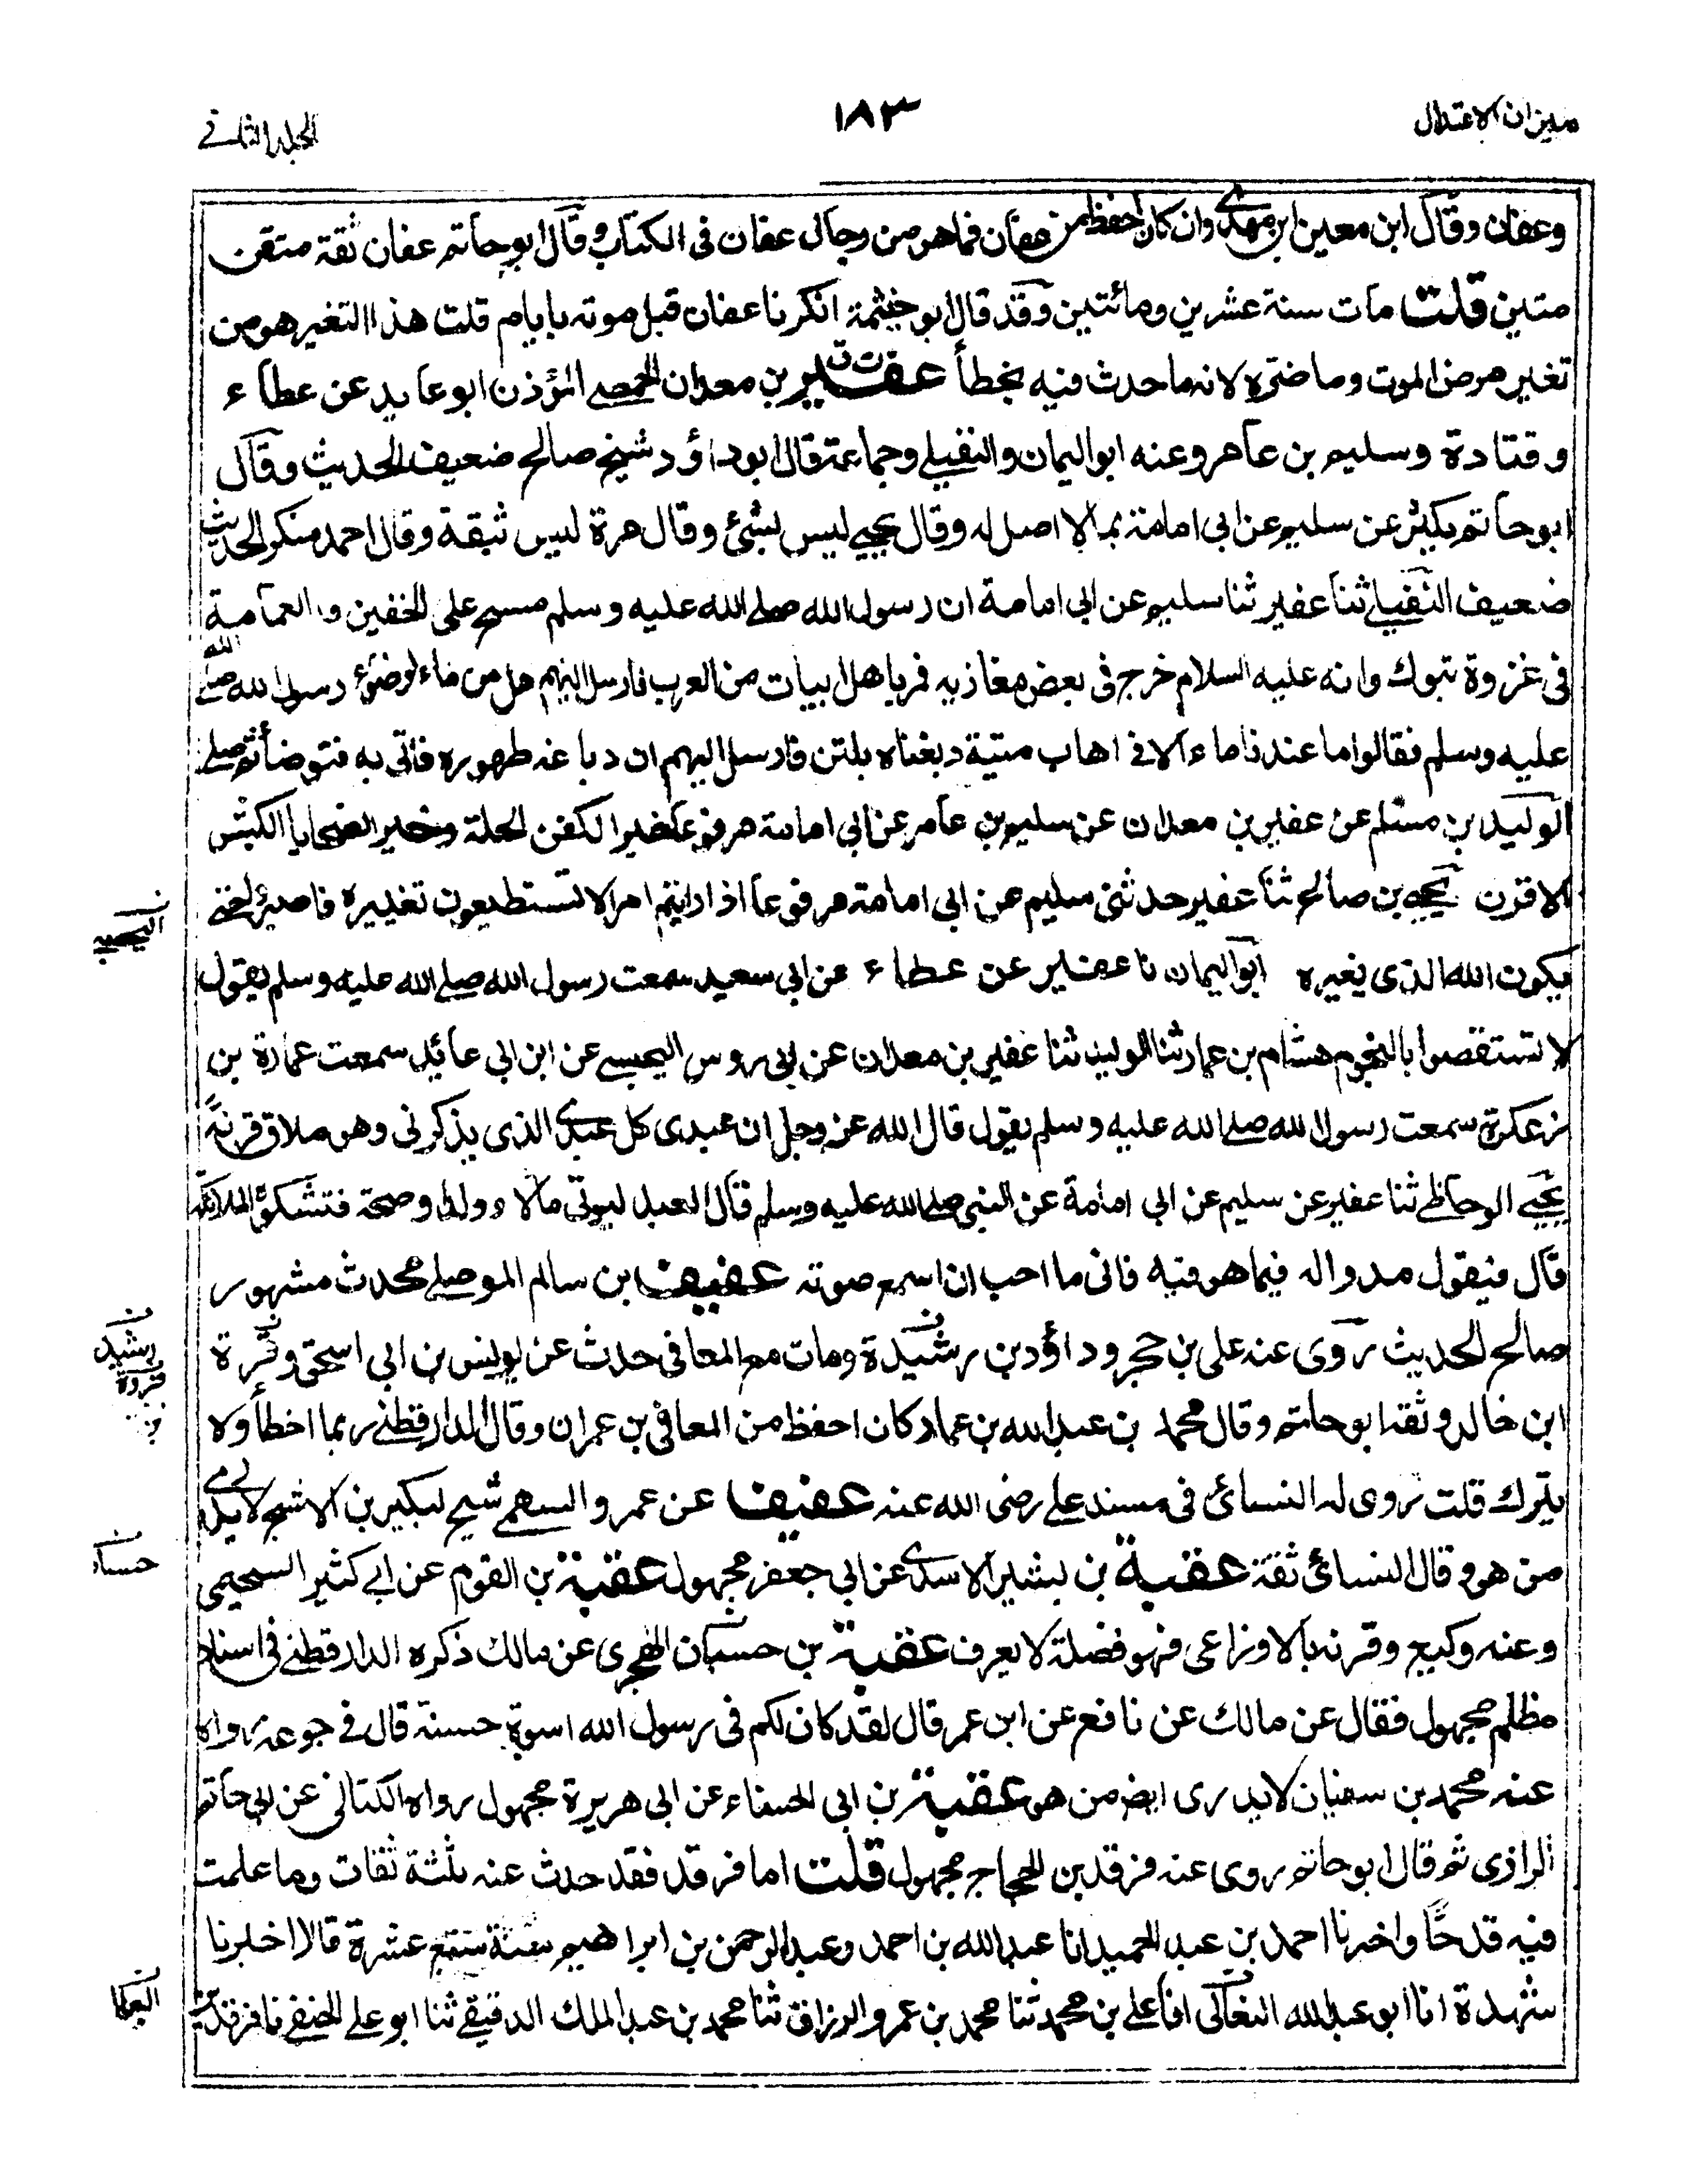 ميزان الاعتدال
١٨٣
المجلد الثانے
وعفان وقال ابن معين ابن مهدي وان كان احفظ من عفان فما هو من رجال عفان فی الكتاب وقال ابو حاتم عفان ثقة متقن
متين قلت مات سنة عشرين ومائتين وقد قال ابو خيثمة انكرنا عفان قبل موته بايام قلت هذا التغير هو من
تغير مرض الموت وما ضره لانه ما حدث فيه بخطأ عفير بن معدان الحمصے المؤذن ابو عايد عن عطاء
و قتادة وسليم بن عامر وعنه ابو اليمان والنفيلے وجماعة قال ابو داؤد شيخ صالح ضعيف الحديث وقال
ابو حاتم يكثر عن سليم عن ابي امامة بما لا اصل له وقال يحيے ليس بشئ وقال مرة ليس بثقة وقال احمد منكر الحديث
ضعيف النفيلے ثنا عفير ثنا سليم عن ابي امامة ان رسول الله صلے الله عليه وسلم مسح علی الخفين والعمامة
فی غزوة تبوك وانه عليه السلام خرج فی بعض مغازيه فمر باهل ابيات من العرب فارسل اليهم هل من ماء لوضوء رسول الله صلے الله
عليه وسلم فقالوا ما عندنا ماء الا فی اهاب ميتة دبغناه بلبن فارسل اليهم ان دباغه طهوره فاتی به فتوضأ ثم صلے
الوليد بن مسلم عن عفير بن معدان عن سليم بن عامر عن ابي امامة مرفوعا خير الكفن الحلة وخير الضحايا الكبش
الاقرن يحيے بن صالح ثنا عفير حدثنی سليم عن ابی امامة مرفوعا اذا رايتم امرا لا تستطيعون تغييره فاصبروا حتے
يكون الله الذی يغيره ابو اليمان نا عفير عن عطاء عن ابی سعيد سمعت رسول الله صلے الله عليه وسلم يقول
لا تستقصوا بالنجوم هشام بن عمار ثنا الوليد ثنا عفير بن معدان عن ابی دوس اليحصبے عن ابن ابی عائذ سمعت عمارة بن
زعكرة سمعت رسول الله صلے الله عليه وسلم يقول قال الله عز وجل ان عبدی كل عبدی الذی يذكرنی وهو ملاق قرنه
يحيے الوحاظے ثنا عفير عن سليم عن ابی امامة عن النبی صلے الله عليه وسلم قال العبد ليوتی مالا وولدا وصحة فتشكو الملائكة
قال فيقول مدوا له فيما هو فيه فانی ما احب ان اسمع صوته عفيف بن سالم الموصلے محدث مشهور
صالح الحديث روی عنه علی بن حجر وداؤد بن رشيدة ومات مع المعافی حدث عن يونس بن ابی اسحق وقرة
ابن خالد وثقه ابو حاتم وقال محمد بن عبد الله بن عمار كان احفظ من المعافی بن عمران وقال الدارقطنے ربما اخطأ ولا
يترك قلت روی له النسائی فی مسند علے رضی الله عنه عفيف عن عمرو السهمے شيخ لبكير بن الاشج لا يدری
من هو وقال النسائی ثقة عقبة بن بشير الاسدی عن ابی جعفر مجهول عقبة بن التوم عن ابے كثير السحيمی
وعنه وكيع وقرنه بالاوزاعی فهو فضلة لا يعرف عقبة بن حسبان الهجری عن مالك ذكره الدارقطنے فی اسناد
مظلم مجهول فقال عن مالك عن نافع عن ابن عمر قال لقد كان لكم فی رسول الله اسوة حسنة قال فے جوعه رواه
عنه محمد بن سفيان لا يدری ايض من هو عقبة بن ابی الحسناء عن ابی هريرة مجهول رواه الكتانی عن ابی حاتم
الرازی ثم قال ابو حاتم روی عنه فرقد بن الحجاج مجهول قلت اما فرقد فقد حدث عنه ثلثة ثقات وما علمت
فيه قدحًا واخبرنا احمد بن عبد الحميد انا عبد الله بن احمد وعبد الرحمن بن ابراهيم سنة سبع عشرة قالا اخبرنا
شهدة انا ابو عبد الله النعالی انا علے بن محمد ثنا محمد بن عمرو الرزاق ثنا محمد بن عبد الملك الدقيقے ثنا ابو علے الحنفے نا فرقد بن
رشيد
قروة
حسنا